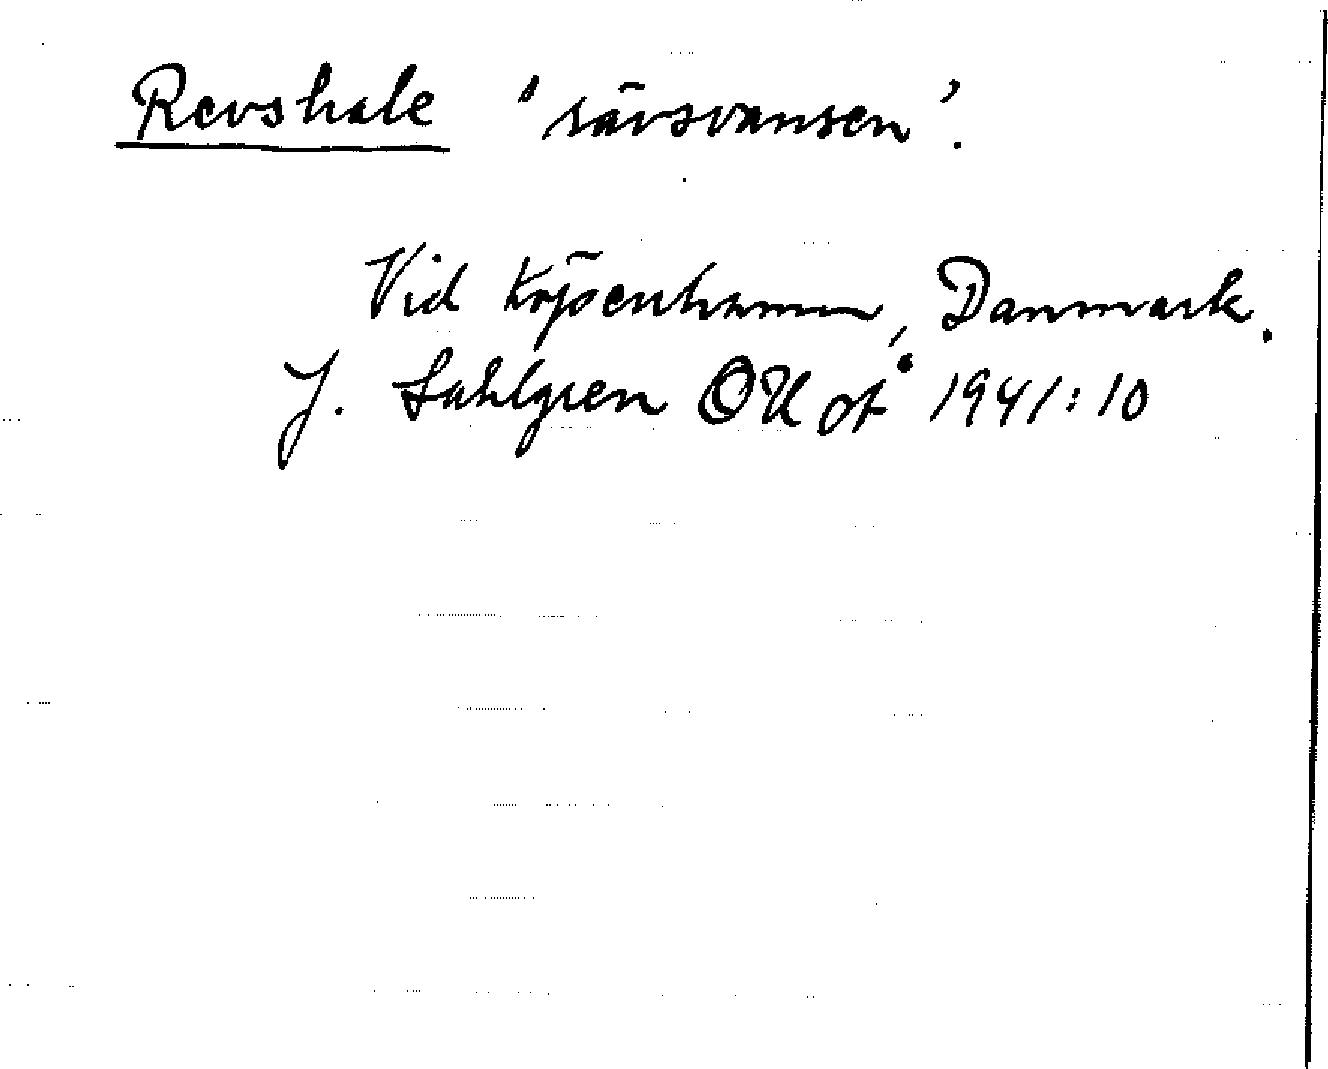 Revshale 'rävsvansen'.
Vid Köpenhamn, Danmark.
J. Sahlgren OUÅ 1941:10